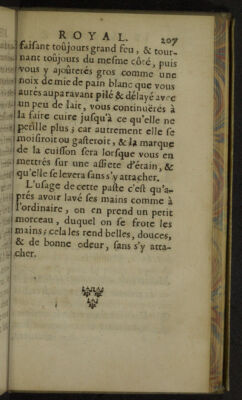 ROYAL. 207
faisant toûjours grand feu, & tour-
nant toûjours du mesme côté, puis
vous y ajoûterés gros comme une
noix de mie de pain blanc que vous
aurés auparavant pilé & délayé avec
un peu de lait, vous continuërés à
la faire cuire jusqu'à ce qu'elle ne
petille plus; car autrement elle se
moisiroit ou gasteroit, & la marque
de la cuisson sera lorsque vous en
mettrés sur une assiete d'étain, &
qu'elle se levera sans s'y attacher.
L'usage de cette paste c'est qu'a-
prés avoir lavé ses mains comme à
l'ordinaire, on en prend un petit
morceau, duquel on se frote les
mains; cela les rend belles, douces,
& de bonne odeur, sans s'y atta-
cher.